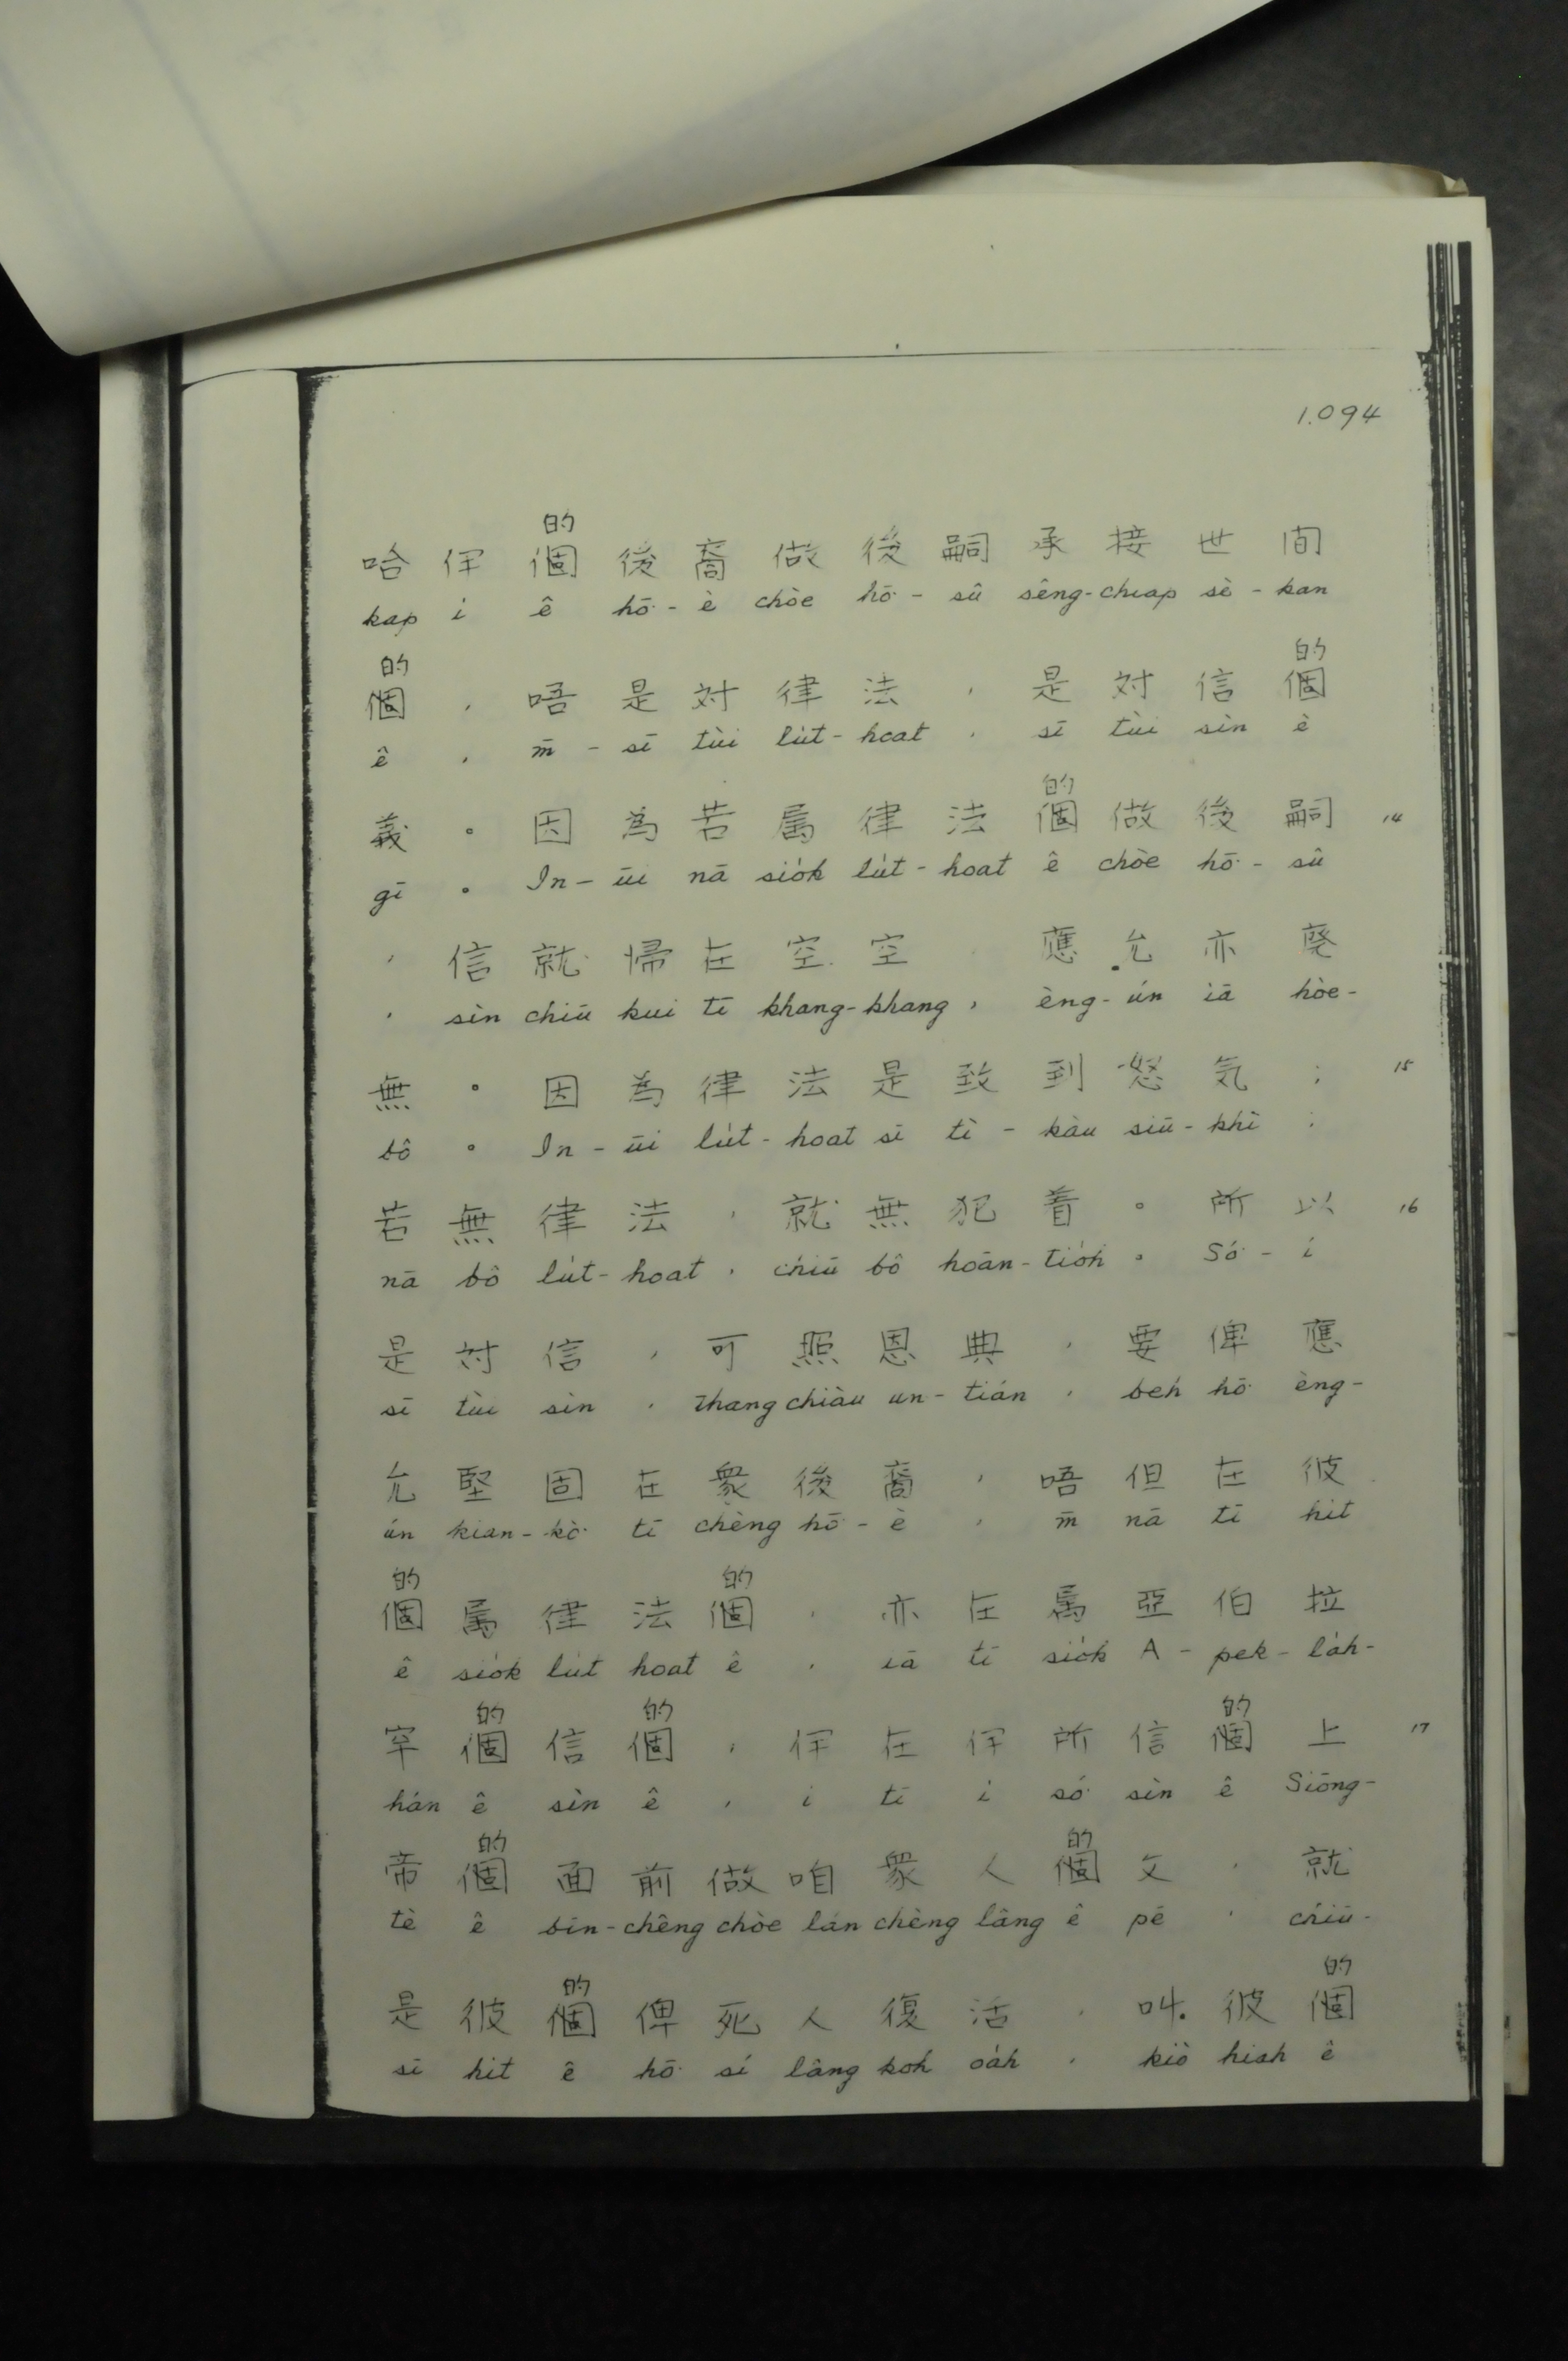 1.094
的
哈 伊 個 後 裔 做 後 嗣 承 接 世 间
kap i ê hō͘ - è chòe hō͘ - sû sêng-chiap sè - kan
的 的
個 , 唔 是 対 律 法 , 是 対 信 個
ê , m̄ - sī tùi lu̍t - hoat , sī tùi sìn ê
的
義 。 因 為 若 属 律 法 個 做 後 嗣 14
gī 。 In - ūi nā sio̍k lu̍t - hoat ê chòe hō͘ - sû
, 信 就 帰 在 空 空 應 允 亦 廃
, sìn chiū kui tī khang-khang , èng - ún iā hòe -
無 。 因 為 律 法 是 致 到 怒 気 ; 15
bô 。 In - ūi lu̍t - hoat sī tì - kàu siū - khì ;
若 無 律 法 , 就 無 犯 着 。 所 以 16
nā bô lu̍t - hoat , chiū bô hoān - tio̍h 。 Só͘ - í
是 対 信 , 可 照 恩 典 , 要 俾 應
sī tùi sìn , thang chiàu un - tián , beh hō͘ èng -
允 堅 固 在 衆 後 裔 , 唔 但 在 彼
ún kian - kò͘ tī chèng hō͘ - è , m̄ nā tī hit
的 的
個 属 律 法 個 , 亦 在 属 亞 伯 拉
ê sio̍k lu̍t hoat ê , iā tī sio̍k A - pek - la̍h -
的 的 的
罕 個 信 個 , 伊 在 伊 所 信 個 上 17
hán ê sìn ê , i tī i só͘ sìn ê Siōng -
的 的
帝 個 面 前 做 咱 衆 人 個 父 , 就
tè ê bīn - chêng chòe lán chèng lâng ê pē , chiū -
的 的
是 彼 個 俾 死 人 復 活 , 叫 彼 個
sī hit ê hō͘ sí lâng koh oa̍h , kiò hiah ê